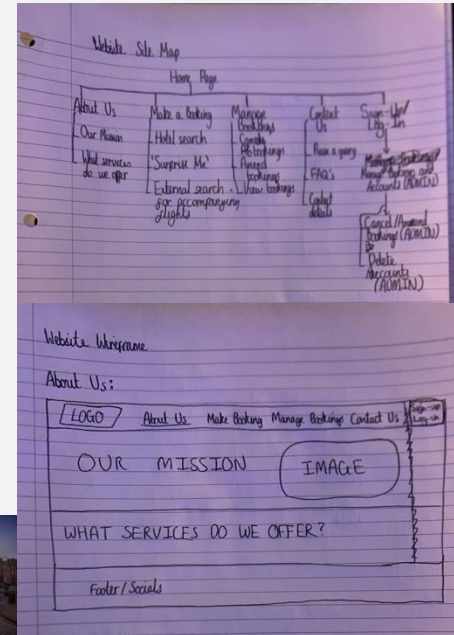 Website Site Map
Home Page
About Us
Our Mission
What services
do we offer
Make a Booking
Hotel search
'Surprise Me'
External search
for accompanying
flights
Manage
Bookings
Cancel
bookings
Amend
bookings
View bookings
Contact
Us
Raise a query
FAQ's
Contact
details
Sign-Up/
Log-In
Manage Bookings and
Accounts (ADMIN)
Cancel/Amend
Bookings (ADMIN)
Delete
Accounts
(ADMIN)
Website Wireframe
About Us:
LOGO About Us Make Booking Manage Bookings Contact Us Sign-up
Log-in
OUR MISSION IMAGE
WHAT SERVICES DO WE OFFER?
Footer/Socials